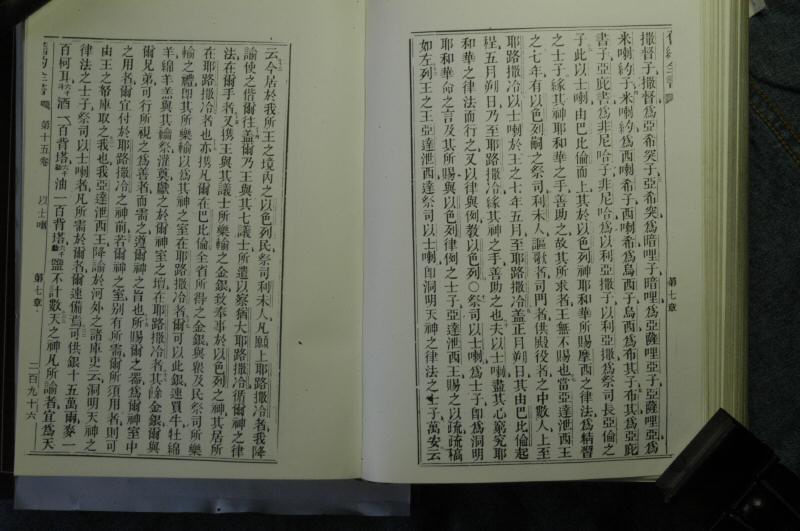 舊約全書
第七章
撒督子撒督爲亞希突子亞希突爲暗哩子暗哩爲亞薩哩亞子亞薩哩亞爲
米喇約子米喇約爲西喇希子西喇希爲烏西子烏西爲布其子布其爲亞庇
書子亞庇書爲非尼哈子非尼哈爲以利亞撒子以利亞撒爲祭司長亞倫之
子此以士喇由巴比倫而上其於以色列神耶和華所賜摩西之律法爲精習
之士子緣其神耶和華之手善助之故其所求者王無不賜也當亞達泄西王
之七年有以色列嗣之祭司利未人謳歌者司門者供殿役者之中數人上至
耶路撒冷以士喇於王之七年五月至耶路撒冷蓋正月朔日其由巴比倫起
程五月朔日乃至耶路撒冷緣其神之手善助之也夫以士喇盡其心窮究耶
和華之律法而行之又以律與例教以色列○祭司以士喇爲士子即爲洞明
耶和華命之言及其所賜與以色列律例之士子亞達泄西王賜之以疏疏稿
如左列王之王亞達泄西達祭司以士喇即洞明天神之律法之士子萬安云
云今居於我所王之境內之以色列民祭司利未人凡願上耶路撒冷者我降
諭使之偕爾往蓋爾乃王與其七議士所遣以察猶大耶路撒冷循爾神之律
法在爾手者又攜王與其議士所樂輸之金銀致奉事於以色列之神其居所
在耶路撒冷者也亦攜凡爾在巴比倫全省所得之金銀與衆及民祭司所樂
輸之禮即其所樂輸以爲其神之室在耶路撒冷者爾可以此銀速買牛牡綿
羊綿羊羔與其餉祭灌奠獻之於爾神室之壇在耶路撒冷者其餘金銀爾與
爾兄弟可行所視之爲善者而需之遵爾神之旨也所賜爾之器爲爾神室中
之用者爾宜付於耶路撒冷之神前若爾神之室別有所需爾所須用者則可
由王之帑庫取之我也我亞達泄西王降諭於河外之諸庫吏云洞明天神之
律法之士子祭司以士喇者凡所需於爾者爾速備焉可供銀十五萬兩麥一
百柯耳酒一百背塔油一百背塔鹽不計數天之神凡所諭者宜爲天
舊約全書 第十五卷 以士喇 第七章 二百九十六